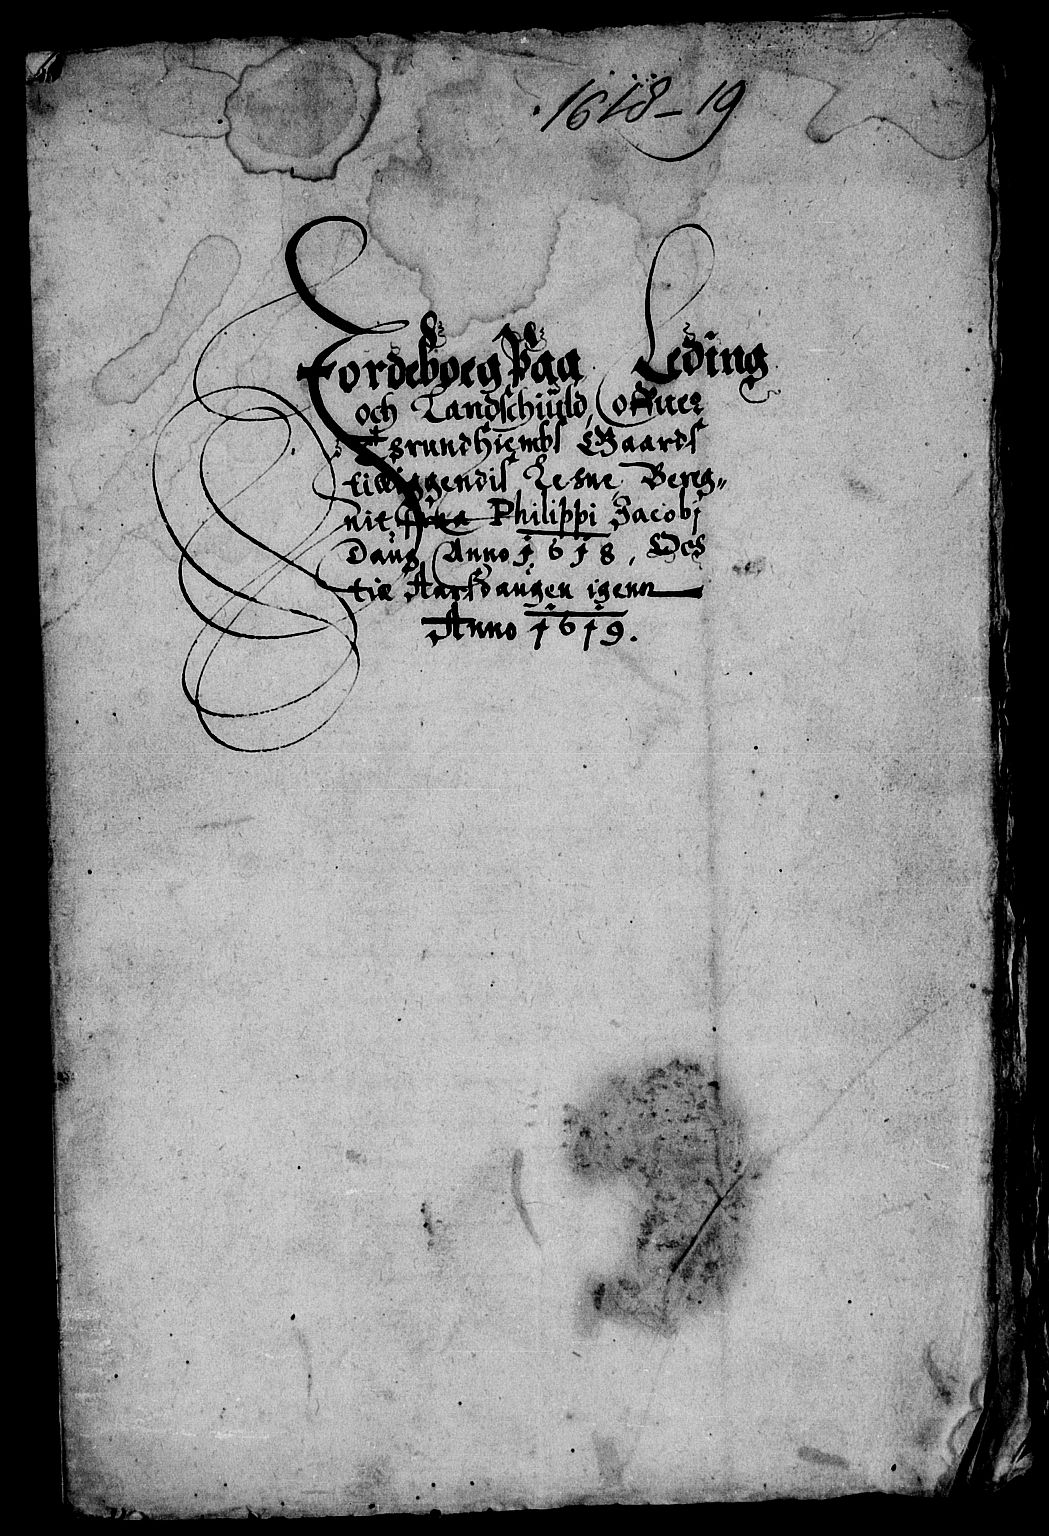 1618-19
Jordeboeg Paa Leding
och Landschiuld, offuer
Trundhiembs Gaards
tilliggendis Lehne Bereg„
nit fraa Philippi Jacobj
Daug Anno 1618, Och
till Aarsdaugen igenn
Anno 1619.